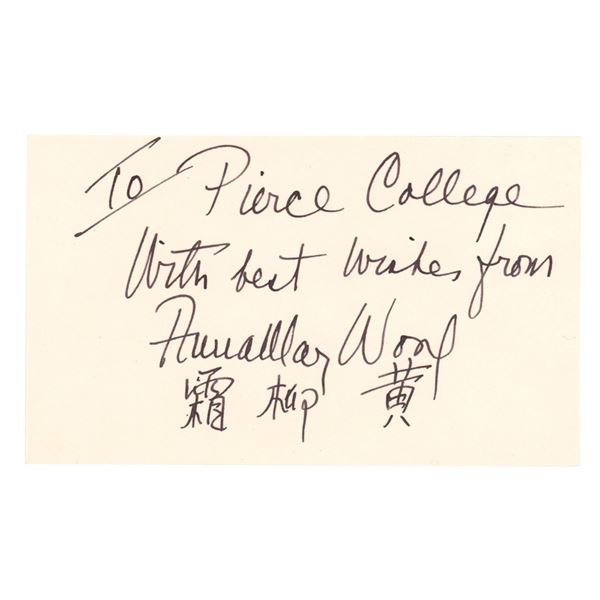 To Pierce College
With best wishes from
Anna May Wong
霜 柳 黄